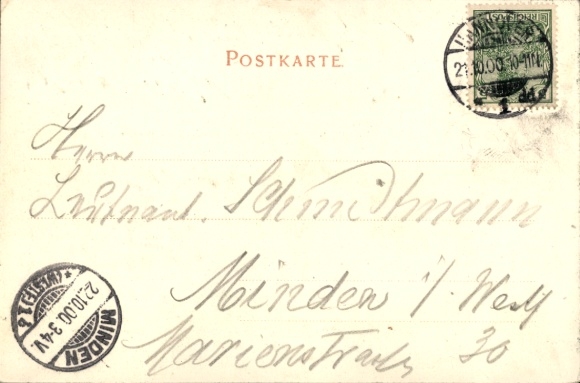 POSTKARTE.
21.10.00.10-11V.
1
Herrn
Leutnant. Schmidtmann
Minden i/ Westf
Marienstraße 30
MINDEN
22.10.00.3-4V
*(WESTF.) 1 d